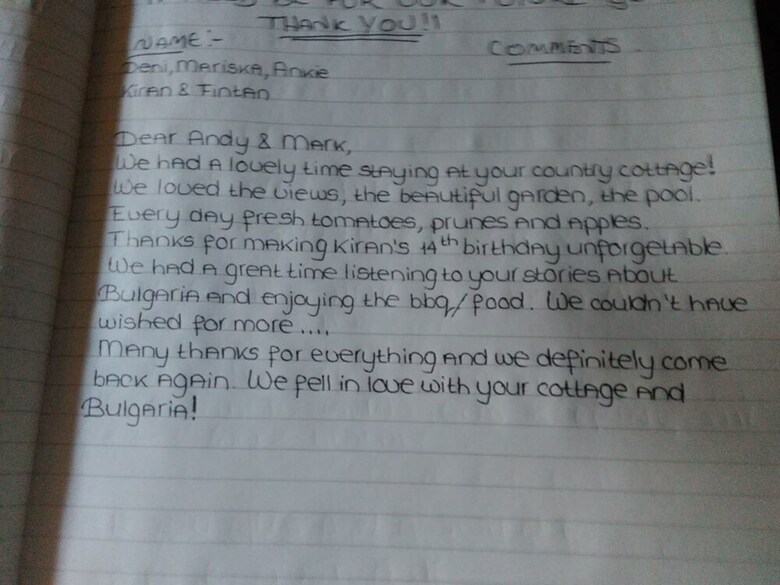 THANK YOU!!
NAME:- COMMENTS
Deni, Mariska, Ankie
Kiran & Fintan
Dear Andy & Mark,
We had a lovely time staying at your country cottage!
We loved the views, the beautiful garden, the pool.
Every day fresh tomatoes, prunes and apples.
Thanks for making Kiran's 14th birthday unforgetable.
We had a great time listening to your stories about
Bulgaria and enjoying the bbq/food. We couldn't have
wished for more....
Many thanks for everything and we definitely come
back again. We fell in love with your cottage and
Bulgaria!